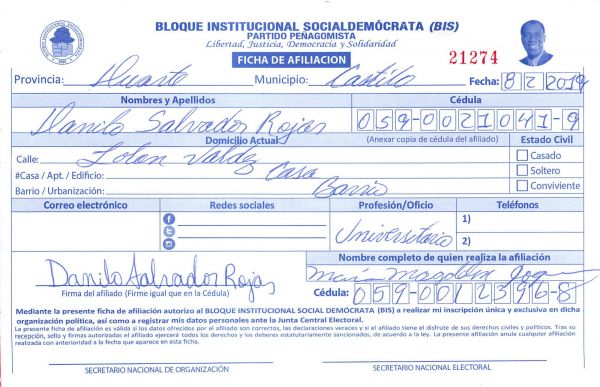 BLOQUE INSTITUCIONAL SOCIALDEMÓCRATA (BIS)
PARTIDO PEÑAGOMISTA
Libertad, Justicia, Democracia y Solidaridad
FICHA DE AFILIACION
21274
Provincia: Duarte Municipio: Castillo Fecha: 8 2 2019
Nombres y Apellidos Cédula
Danilo Salvador Rojas 059-0021041-9
Domicilio Actual (Anexar copia de cédula del afiliado) Estado Civil
Calle: Lolon Valdez
Casado
#Casa / Apt. / Edificio: Casa
Soltero
Barrio / Urbanización: Barrio
Conviviente
Correo electrónico Redes sociales Profesión/Oficio Teléfonos
1)
Universitario
2)
Nombre completo de quien realiza la afiliación
Danilo Salvador Rojas
Firma del afiliado (Firme igual que en la Cédula)
Cédula: 059-0012396-8
Mediante la presente ficha de afiliación autorizo al BLOQUE INSTITUCIONAL SOCIAL DEMÓCRATA (BIS) a realizar mi inscripción única y exclusiva en dicha
organización política, así como a registrar mis datos personales ante la Junta Central Electoral.
La presente ficha de afiliación es válida si los datos ofrecidos por el afiliado son correctos, las declaraciones veraces y si el afiliado tiene el disfrute de sus derechos civiles y políticos. Tras su
recepción, sello y firmas autorizadas el afiliado ejercerá todos los derechos y los deberes estatutariamente sancionados, de acuerdo a la ley. La presente afiliación anula cualquier afiliación
realizada con anterioridad a la fecha que aparece en esta ficha.
SECRETARIO NACIONAL DE ORGANIZACIÓN SECRETARIO NACIONAL ELECTORAL